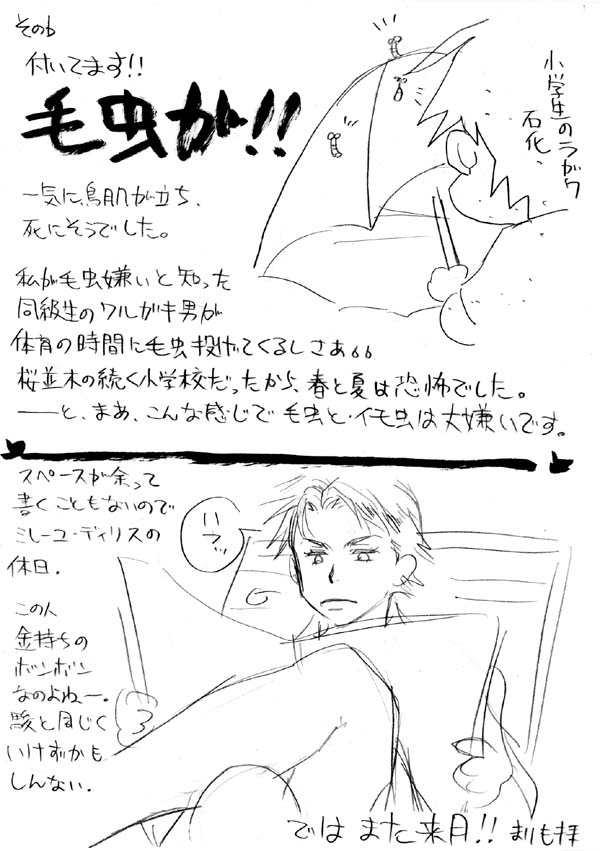 その6
付いてます!!
毛虫が!!
小学生のラがワ
石化、
一気に鳥肌が立ち、
死にそうでした。
私が毛虫嫌いと知った
同級生のワルガキ男が
体育の時間に毛虫投げてくるしさぁ。。
桜並木の続く小学校だったから、春と夏は恐怖でした。
――と、まぁ、こんな感じで毛虫と・イモ虫は大嫌いです。
スペースが余って
書くこともないので
ミレーユ・ディリスの
休日.
この人
金持ちの
ボンボン
なのよねー。
駿と同じく
いけずかも
しんない.
ではまた来月!! まりも拝